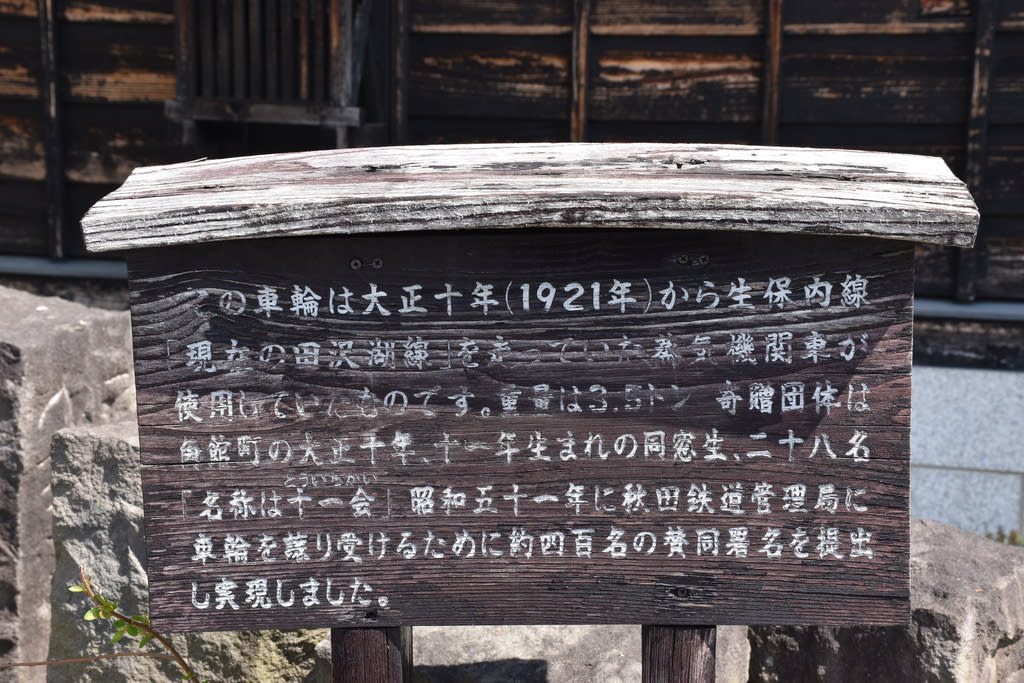 この車輪は大正十年(1921年)から生保内線
「現在の田沢湖線」を走っていた蒸気機関車が
使用していたものです。重量は3.5トン 寄贈団体は
角館町の大正十年、十一年生まれの同窓生、二十八名
とういちかい
「名称は十一会」昭和五十一年に秋田鉄道管理局に
車輪を譲り受けるために約四百名の賛同署名を提出
し実現しました。